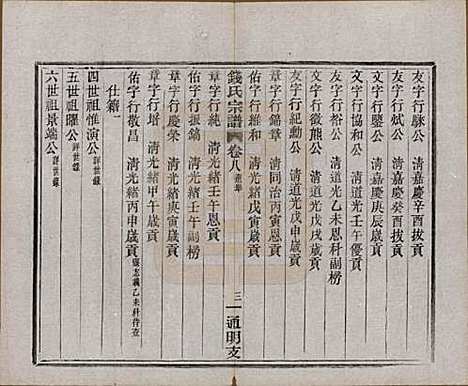 友字行脉公　清嘉慶辛酉拔貢
友字行斌公　清嘉慶癸酉拔貢
文字行鑒公　清嘉慶庚辰歲貢
文字行協和公　清道光壬午優貢
友字行裕公　清道光乙未恩科副榜
文字行徵熊公　清道光戊戌歲貢
友字行紀勳公　清道光戊申歲貢
章字行錦章　清同治丙寅恩貢
佑字行維和　清光緒戊寅歲貢
錢氏宗譜　卷八　三　通明支
章字行純　清光緒壬午恩貢
佑字行振鏞　清光緒壬午副榜
章字行慶榮　清光緒庚寅歲貢
章字行增　清光緒甲午歲貢
佑字行敬昌　清光緒丙申歲貢
仕籍一
四世祖惟演公　詳世錄
五世祖曜公　詳世錄
六世祖景端公　詳世錄